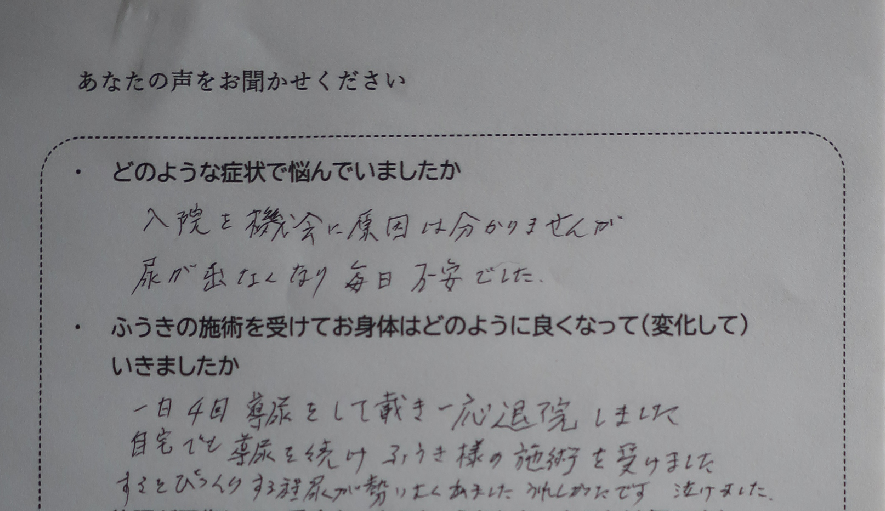 あなたの声をお聞かせください
・ どのような症状で悩んでいましたか
入院を機会に原因は分かりませんが
尿が出なくなり毎日不安でした.
・ ふうきの施術を受けてお身体はどのように良くなって(変化して)
いきましたか
一日4回導尿をして戴き一応退院しました
自宅でも導尿を続けふうき様の施術を受けました
するとびっくりする程尿が勢いよく出ました うれしかったです 泣けました.